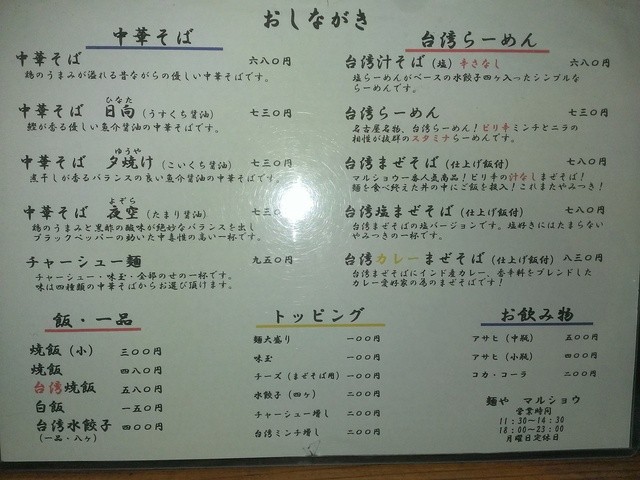 おしながき
中華そば
中華そば 六八〇円
鶏のうまみが溢れる昔ながらの優しい中華そばです。
ひなた
中華そば 日向(うすくち醤油) 七三〇円
鰹が香る優しい魚介醤油の中華そばです。
ゆうや
中華そば 夕焼け(こいくち醤油) 七三〇円
煮干しが香るバランスの良い魚介醤油の中華そばです。
よぞら
中華そば 夜空(たまり醤油) 七三〇円
鶏のうまみと黒酢の酸味が絶妙なバランスを出し
ブラックペッパーの効いた中毒性の高い一杯です。
チャーシュー麺 九五〇円
チャーシュー・味玉・全部のせの一杯です。
味は四種類の中華そばからお選び頂けます。
台湾らーめん
台湾汁そば(塩)辛さなし 六八〇円
塩らーめんがベースの水餃子四ヶ入ったシンプルな
らーめんです。
台湾らーめん 七三〇円
名古屋名物、台湾らーめん!ピリ辛ミンチとニラの
相性が抜群のスタミナらーめんです。
台湾まぜそば(仕上げ飯付) 七八〇円
マルショウ一番人気商品!ピリ辛の汁なしまぜそば!
麺を食べ終えた丼の中にご飯を投入!これまたやみつき!
台湾塩まぜそば(仕上げ飯付) 七八〇円
台湾まぜそばの塩バージョンです。塩好きにはたまらない
やみつきの一杯です。
台湾カレーまぜそば(仕上げ飯付) 八三〇円
台湾まぜそばにインド産カレー、香辛料をブレンドした
カレー愛好家の為のまぜそばです!
飯・一品
焼飯(小) 三〇〇円
焼飯 四八〇円
台湾焼飯 五八〇円
白飯 一五〇円
台湾水餃子 四〇〇円
(一品・八ヶ)
トッピング
麺大盛り 一〇〇円
味玉 一〇〇円
チーズ(まぜそば用) 一〇〇円
水餃子(四ヶ) 二〇〇円
チャーシュー増し 二〇〇円
台湾ミンチ増し 二〇〇円
お飲み物
アサヒ(中瓶) 五〇〇円
アサヒ(小瓶) 四〇〇円
コカ・コーラ 二〇〇円
麺や マルショウ
営業時間
11:30~14:30
18:00~23:00
月曜日定休日